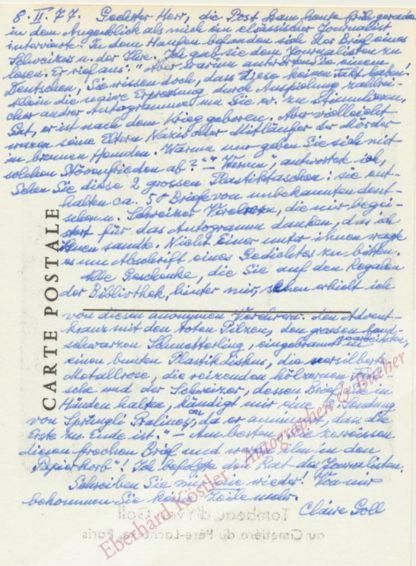 8. II. 77. Geehrter Herr, die Post kam heute früh gerade
in dem Augenblick als mich ein elsässischer Journalist
interviewte. In dem Haufen befanden sich der Brief eines
Schweizers und der Ihre. Ich gab sie dem Journalisten zu
lesen. Er rief aus: " Aber warum antworten Sie einem
Deutschen, Sie wissen doch, dass diese keinen Takt haben!
die naive Erpressung durch Aufzählung zahlrei-
cher andrer Autogramme um Sie zu stimulieren,
Gut, er ist nach dem Krieg geboren. Aber vielleicht
waren seine Eltern Nazis oder Mitläufer der Mörder
in braunen Hemden. Warum nur geben Sie sich mit
solchen ab?" " Warum" antwortete ich,
Sehen Sie diese 2 grossen Plastiktaschen: sie ent-
halten ca. 50 Briefe von unbekannten deut-
schen u. Schweizer Verehrern, die mir begei-
stert für das Autogramm danken, das ich
ihnen sandte. Nicht einer unter ihnen wagte
es um Abschrift eines Gedichtes zu bitten.
Alle Geschenke, die Sie auf den Regalen
der Bibliothek, hinter mir, sehen erhielt ich
von diesen anonymen Verehrern: den Advent-
kranz mit den roten Pilzen, den grossen
schwarzen Schmetterling,
einen bunten Plastik, die versilberte
Metallrose, die reizenden hölzernen
und der Schweizer, dessen Brief Sie in
Händen halten, kündigt mir eine Sendung
von Sprüngli Pralinés an, da er annimmt, dass die
Erste zu Ende ist." – Am besten Sie zerreissen
diesen frechen Brief und werfen ihn in den
Papierkorb"! Ich befolgte den Rat des Journalisten.
Schreiben Sie mir nie wieder! Von mir
bekommen Sie keine Zeile mehr.
Claire Goll
CARTE POSTALE
Eberhard Köstler · Autographen & Bücher
Tombeau d'Yvan Goll
au Cimetière du Père-Lachaise, Paris